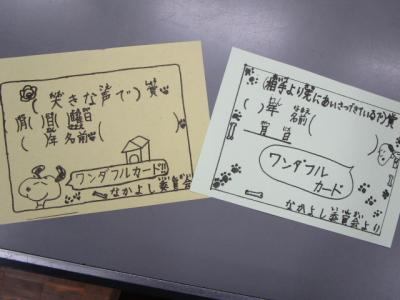 (笑きな声で)賞
( )月( )日( )曜日
( )年 名前( )
ワンダフルカード!!
なかよし委員会
(相手より先にあいさつできているで)賞
( )年 名前( )
月 日
ワンダフル
カード
なかよし委員会より